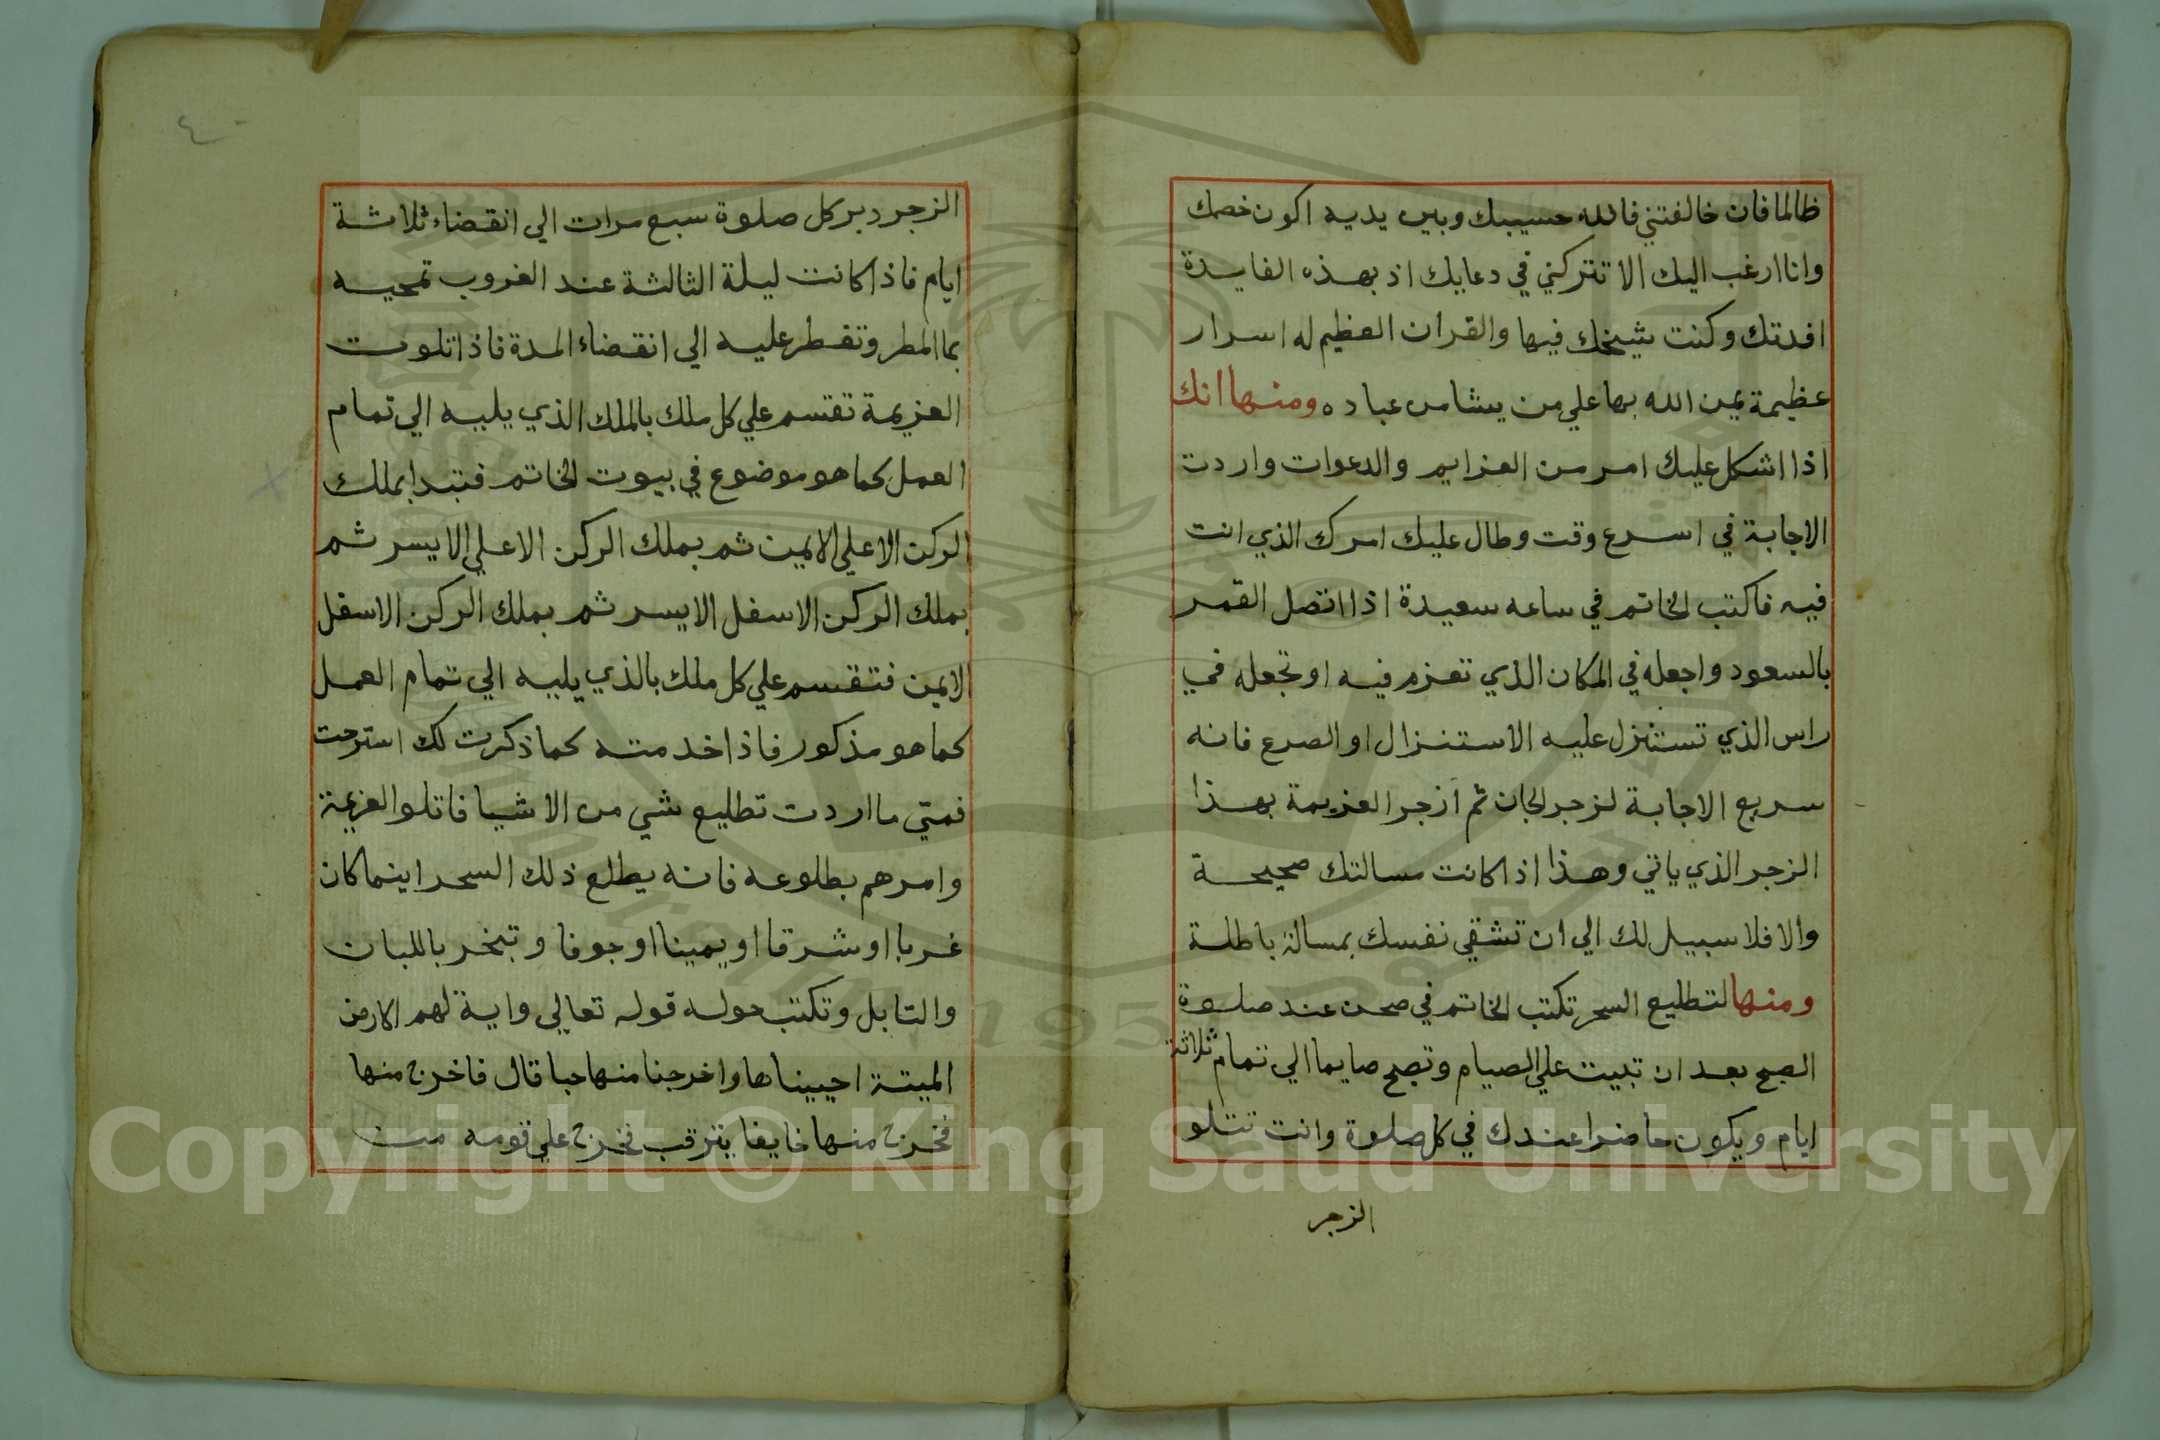 ظالما فان خالفتني فالله حسيبك وبين يديه اكون خصمك
وانا ارغب اليك الا تتركني في دعايك اذ بهذه الفايدة
افدتك وكنت شيخك فيها والقران العظيم له اسرار
عظيمة يمن الله بها علي من يشا من عباده ومنها انك
اذا اشكل عليك امر من العزايم والدعوات واردت
الاجابة في اسرع وقت وطال عليك امرك الذي انت
فيه فاكتب الخاتم في ساعه سعيدة اذا اتصل القمر
بالسعود واجعله في المكان الذي تعزم فيه او تجعله في
راس الذي تستنزل عليه الاستنزال او الصرع فانه
سريع الاجابة لزجر الجان ثم ازجر العزيمة بهذا
الزجر الذي ياتي وهذا اذا كانت مسالتك صحيحة
والا فلا سبيل لك الي ان تشقي نفسك بمسالة باطلة
ومنها لتطليع السحر تكتب الخاتم في صحن عند صلوة
الصبح بعد ان تبيت علي الصيام وتصبح صايما الي تمام ثلاثة
ايام ويكون حاضرا عندك في كل صلوة وانت تتلو
الزجر
٤٠
الزجر دبر كل صلوة سبع مرات الي انقضاء ثلاثة
ايام فاذا كانت ليلة الثالثة عند الغروب تمحيه
بما المطر وتفطر عليه الي انقضاء المدة فاذا تلوت
العزيمة تقتسم علي كل ملك بالملك الذي يليه الي تمام
العمل كما هو موضوع في بيوت الخاتم فتبدا بملك
الركن الاعلي الايمن ثم بملك الركن الاعلي الايسر ثم
بملك الركن الاسفل الايسر ثم بملك الركن الاسفل
الايمن فتقسم علي كل ملك بالذي يليه الي تمام العمل
كما هو مذكور فاذا خدمته كما ذكرت لك استرحت
فمتي ما اردت تطليع شي من الاشيا فاتلو العزيمة
وامرهم بطلوعه فانه يطلع ذلك السحر اينما كان
غربا او شرقا او يمينا او جوفا وتبخر باللبان
والتابل وتكتب حوله قوله تعالي واية لهم الارض
الميتة احييناها واخرجنا منها حبا قال فاخرج منها
فخرج منها خايفا يترقب فخرج علي قومه من
Copyright © King Saud University